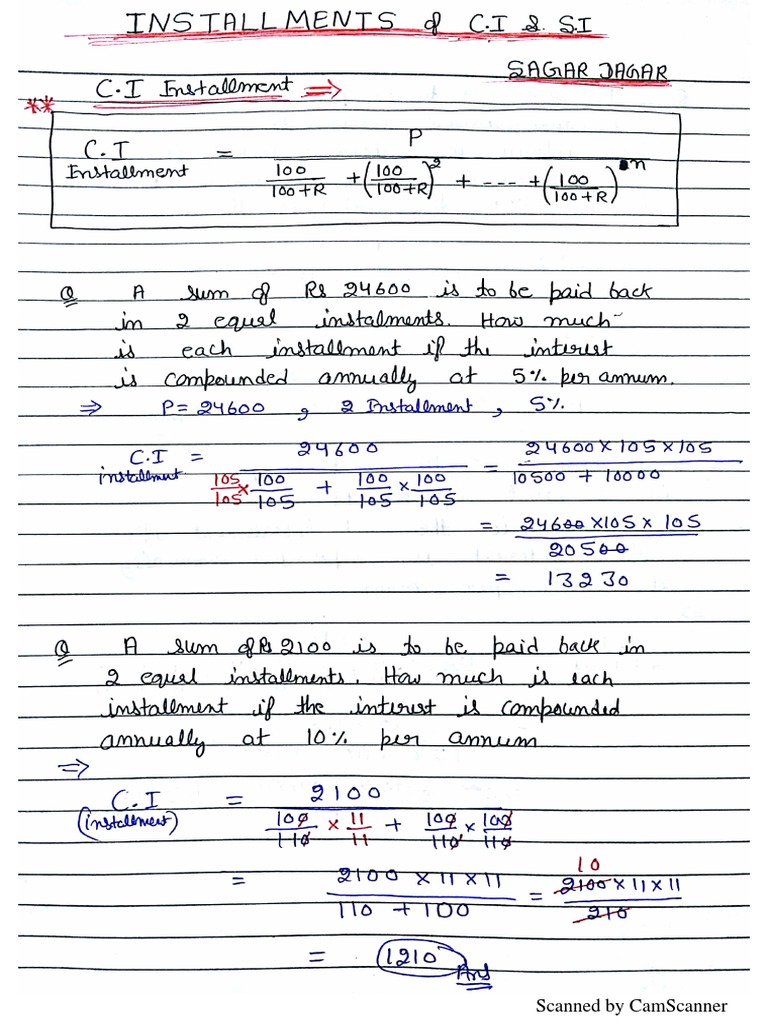 INSTALLMENTS of C.I & S.I
SAGAR DAGAR
** C.I Installment ⇒
C.I Installment = P / (100/(100+R) + (100/(100+R))^2 + --- + (100/(100+R))^n)
Q A sum of Rs 24600 is to be paid back
in 2 equal instalments. How much
is each installment if the interest
is compounded annually at 5% per annum.
⇒ P= 24600 , 2 Installment , 5%
C.I installment = 24600 / (105/105 × 100/105 + 100/105 × 100/105) = 24600 × 105 × 105 / (10500 + 10000)
= 24600 × 105 × 105 / 20500
= 13230
Q A sum of Rs 2100 is to be paid back in
2 equal installments. How much is each
installment if the interest is compounded
annually at 10% per annum
⇒
C.I (installment) = 2100 / (100/110 × 11/11 + 100/110 × 100/110)
= 2100 × 11 × 11 / (110 + 100) = 10 2100 × 11 × 11 / 210
= 1210 Ans
Scanned by CamScanner